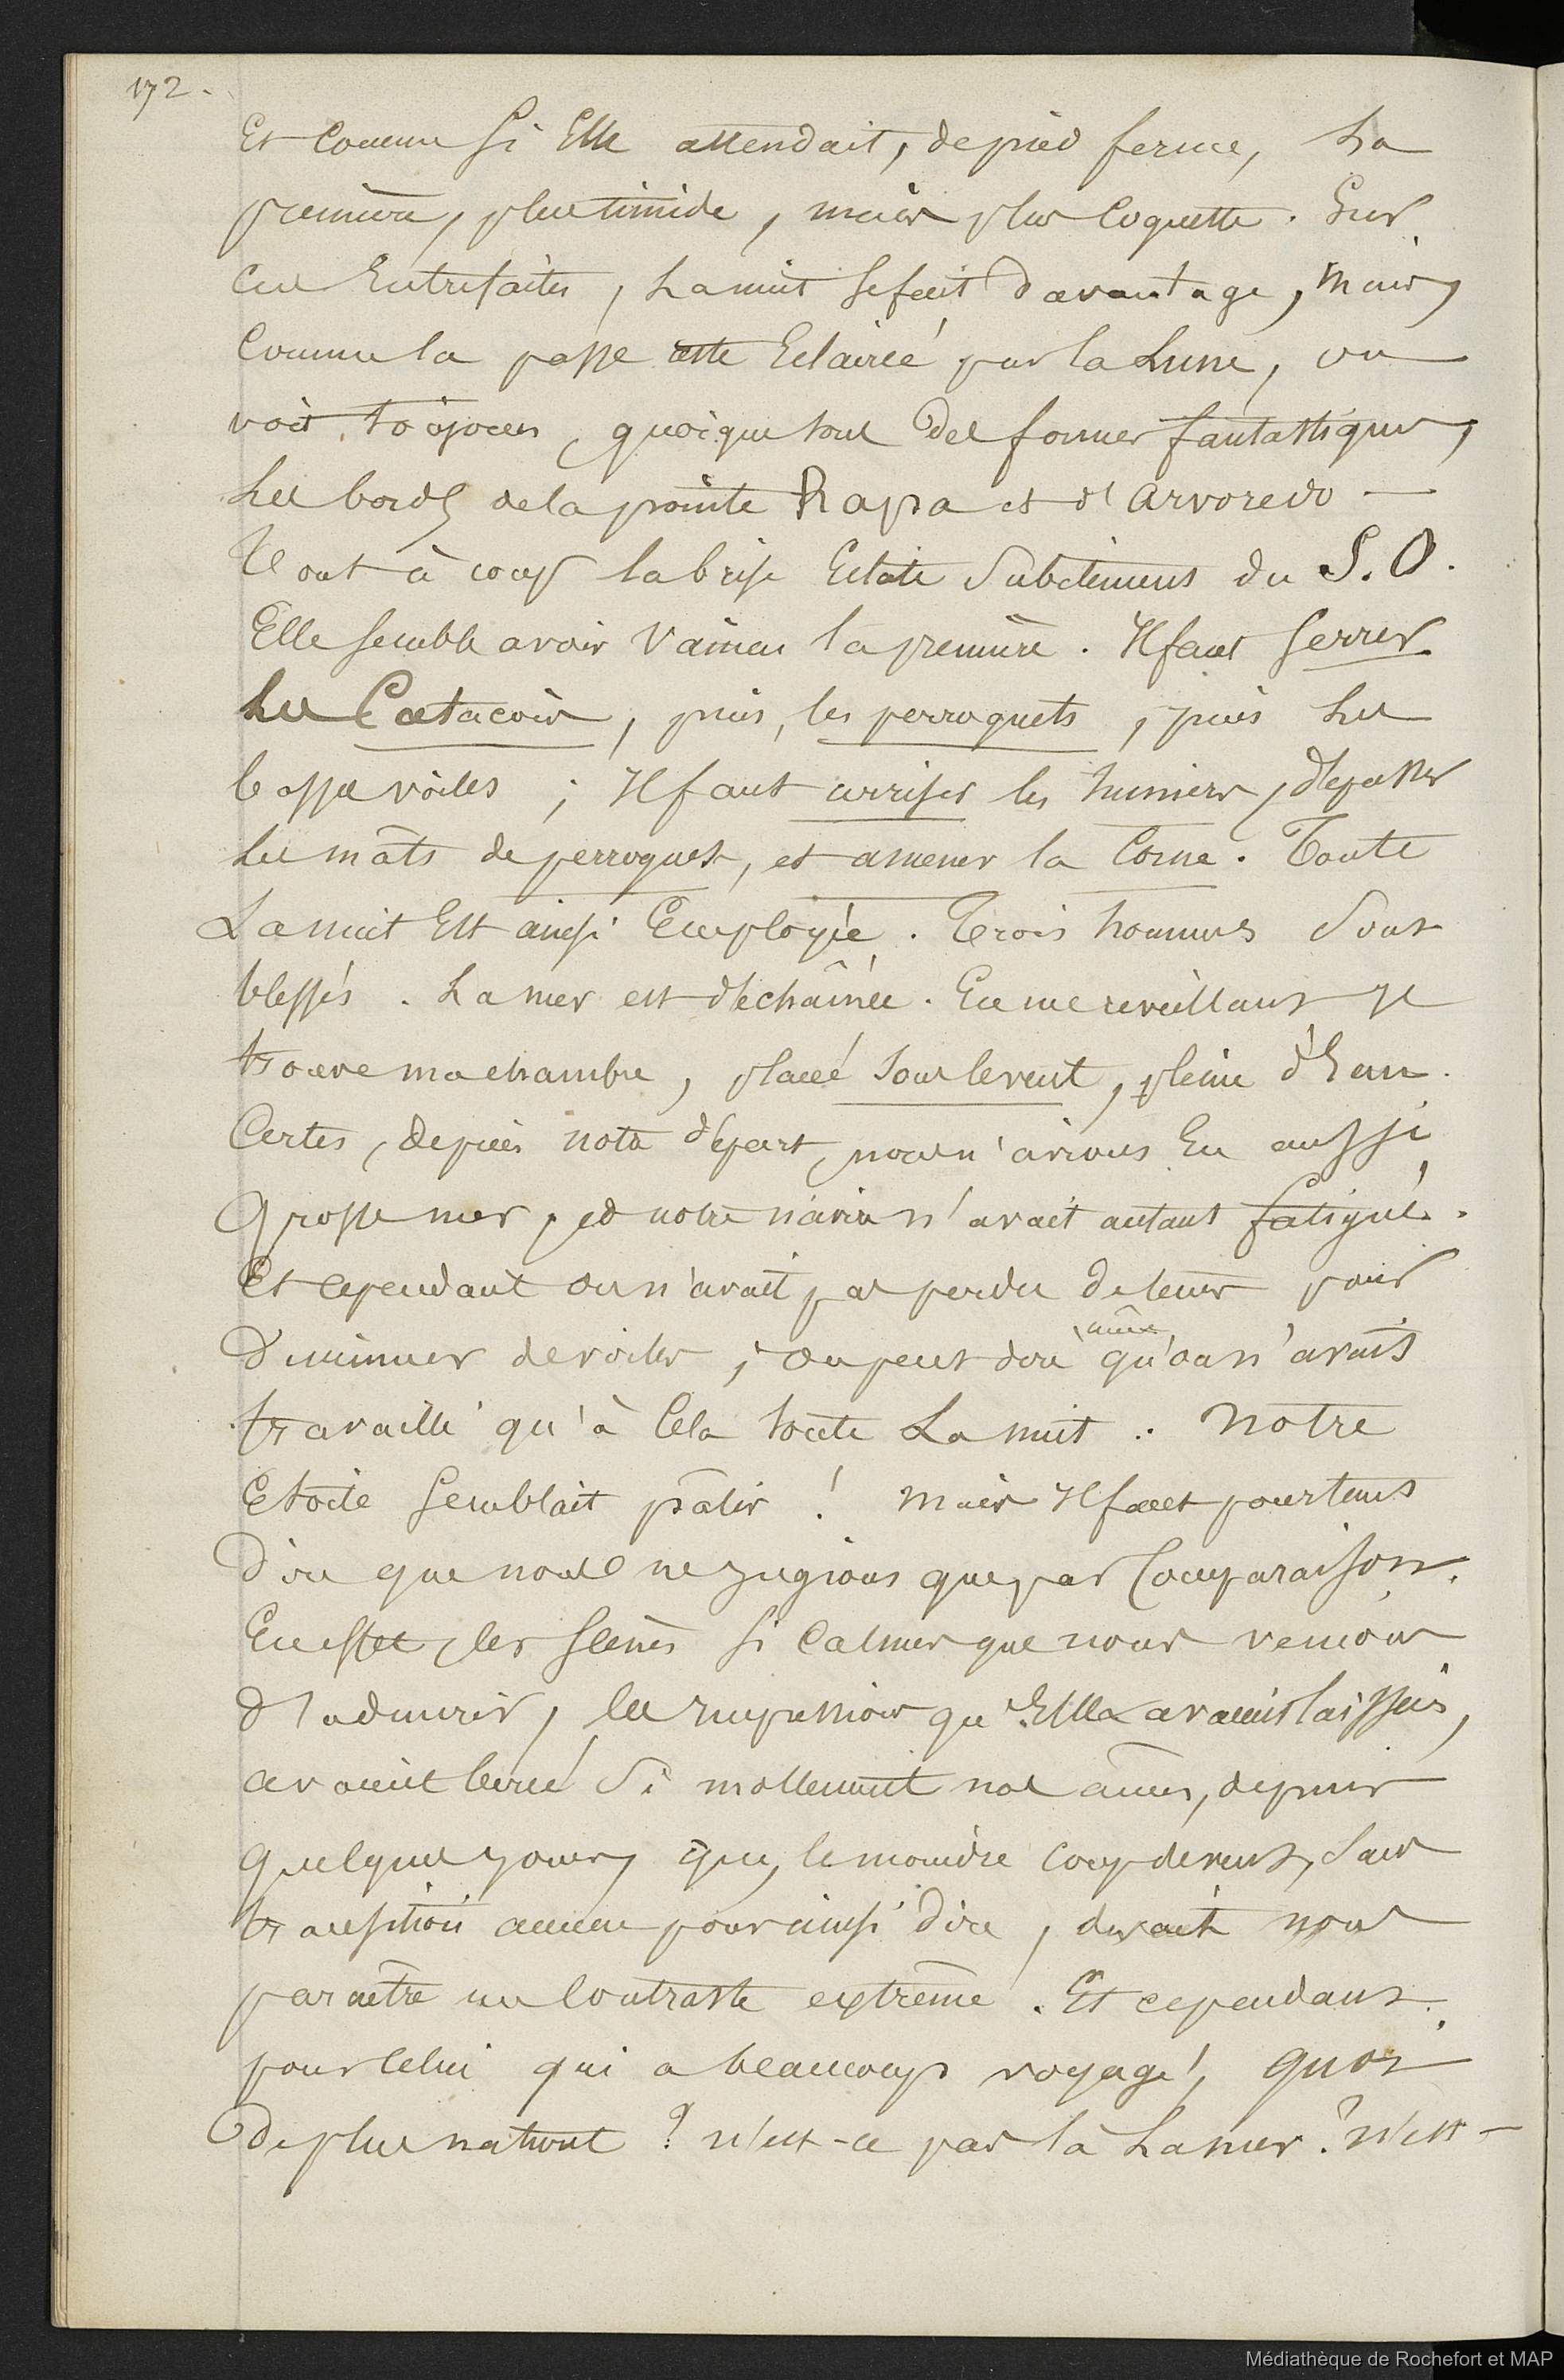 172.
Et Comme si Elle attendait, de pied ferme, La
première, plus timide, mais plus Coquette. Sur
Ces Entrefaites, La nuit se fait davantage, Mais,
Comme la passe est Eclairée par la Lune, on
voit toujours, quoique sous des formes fantastiques,
Les bords de la pointe Rapa et d'arvoredo —
Tout à coup la brise Eclate Subitement du S.O.
Elle semble avoir Vaincu la première. Il faut serrer
Les Catacois, puis, les perroquets, puis Les
basses voiles ; Il faut arriser les huniers, dépasser
Les mâts de perroquet, et amener la Corne. Toute
La nuit Est ainsi Employée. Trois hommes Sont
blessés. La mer est déchaînée. En me reveillant je
trouve ma chambre, placé sous le vent, pleine d'Eau.
Certes, depuis notre départ, nous n'avions Eu aussi
Grosse mer, et notre navire n'avait autant fatigué.
Et cependant on n'avait pas perdu de tems pour
Diminuer de voiles ; on peut dire même qu'on n'avait
travaillé qu'à Cela toute La nuit. Notre
Etoile semblait pâlir ! Mais Il faut pourtant
Dire que nous ne jugions que par Comparaison.
En effet, les scènes si Calmes que nous venions
D'admirer, les impressions qu'Elles avaient laissées,
avaient bercé Si mollement nos âmes, depuis
quelques jours, que, le moindre coup de vent, Sans
transition aucune pour ainsi dire, devait nous
paraître un Contraste extrême. Et cependant
pour Celui qui a beaucoup voyagé, quoi
De plus naturel ? n'est-ce pas là La mer ? n'est-
Médiathèque de Rochefort et MAP